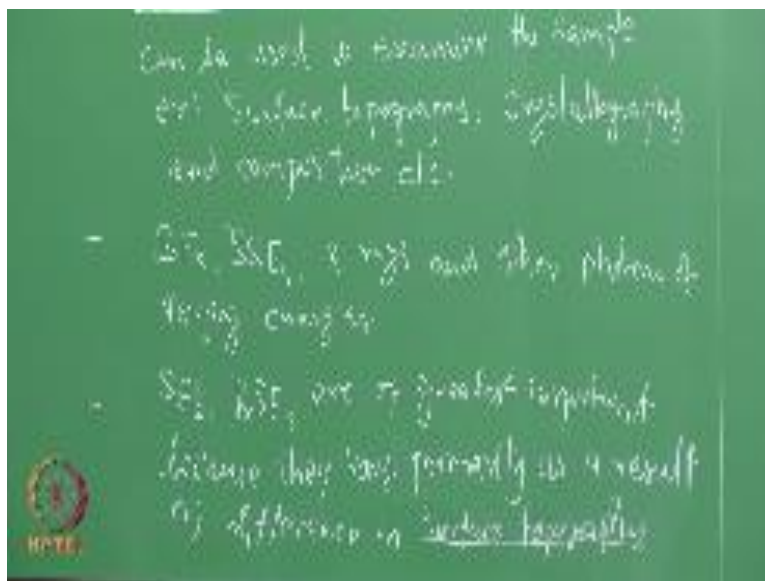 can be used to examine the sample
eg: Surface topography, Crystallography
and composition etc.
- SEs, BSEs, x rays and other photons of
varying energies
- SEs, BSEs are of greatest important
because they vary primarily as a result
of difference in surface topography
NPTEL